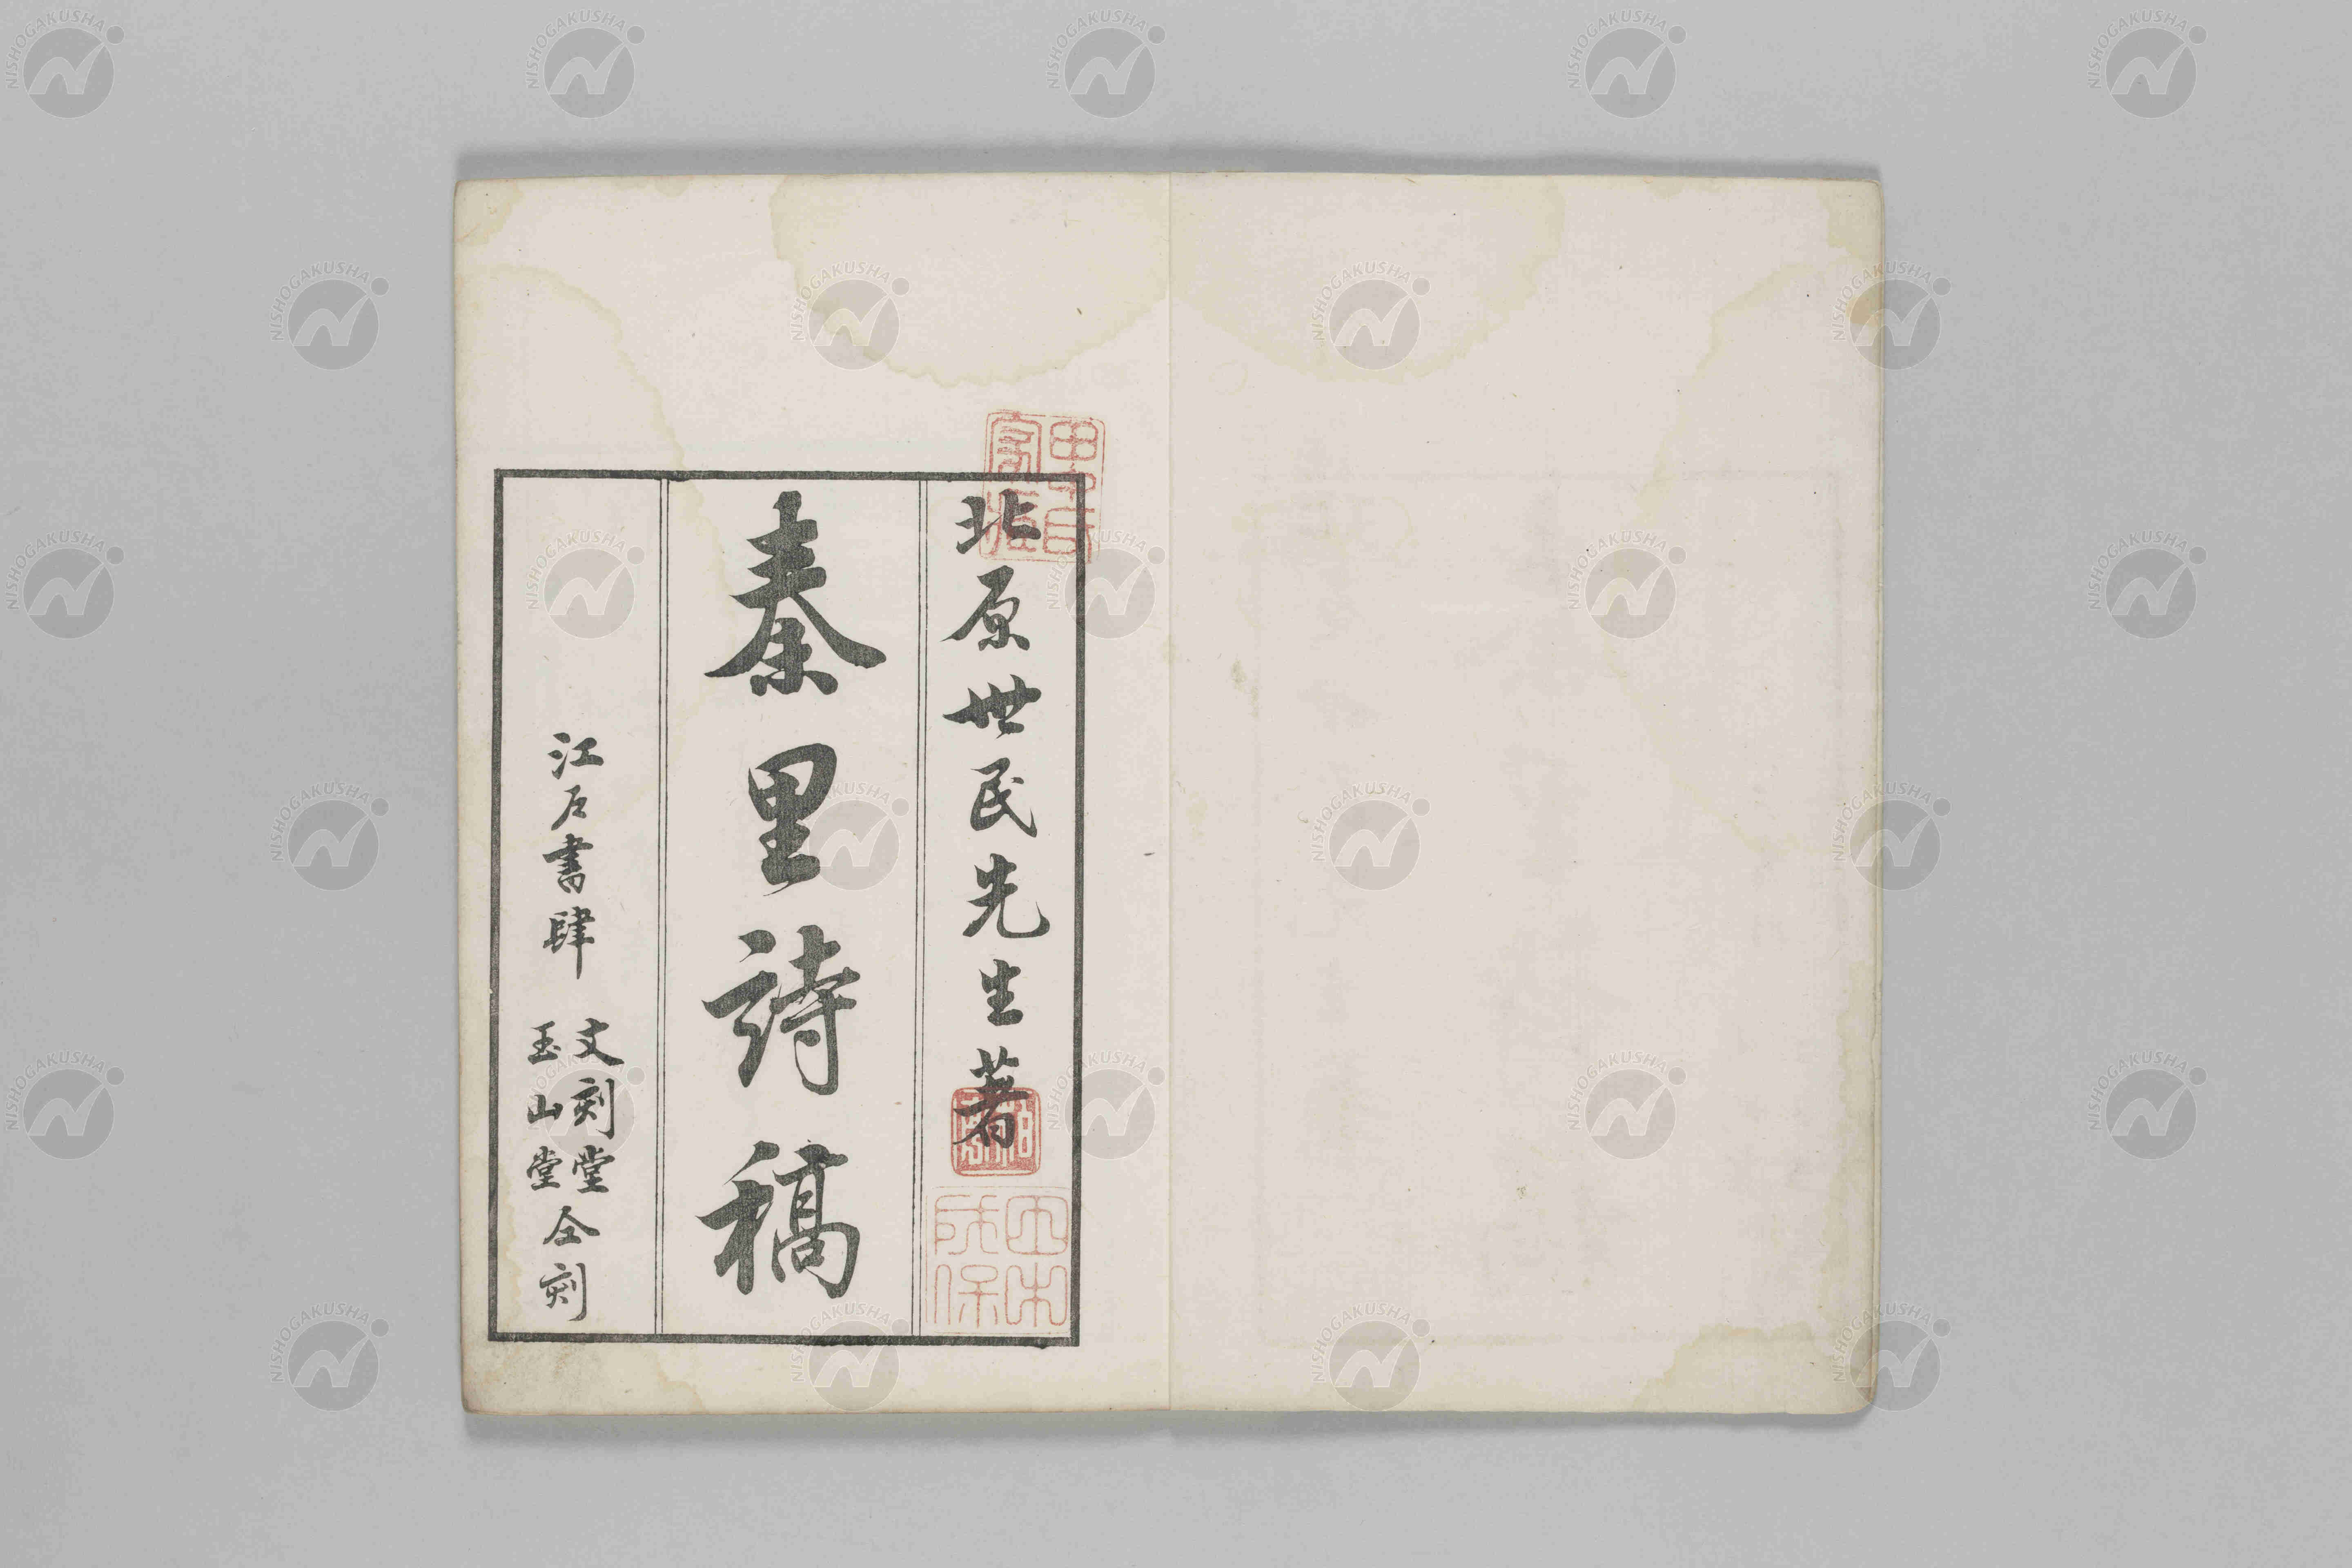 北原世民先生著
秦里詩稿
江戸書肆
文刻堂
玉山堂
仝刻
NISHOGAKUSHA